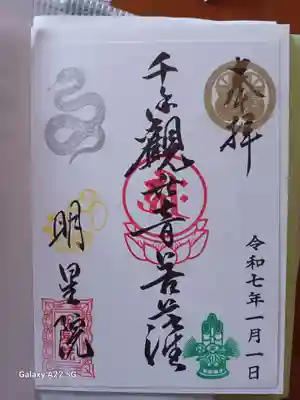 奉拝
千手觀世音菩薩
令和七年一月一日
明星院
Galaxy A22 5G